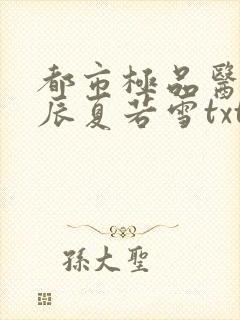 都市極品醫
辰夏若雪txt
孫大聖